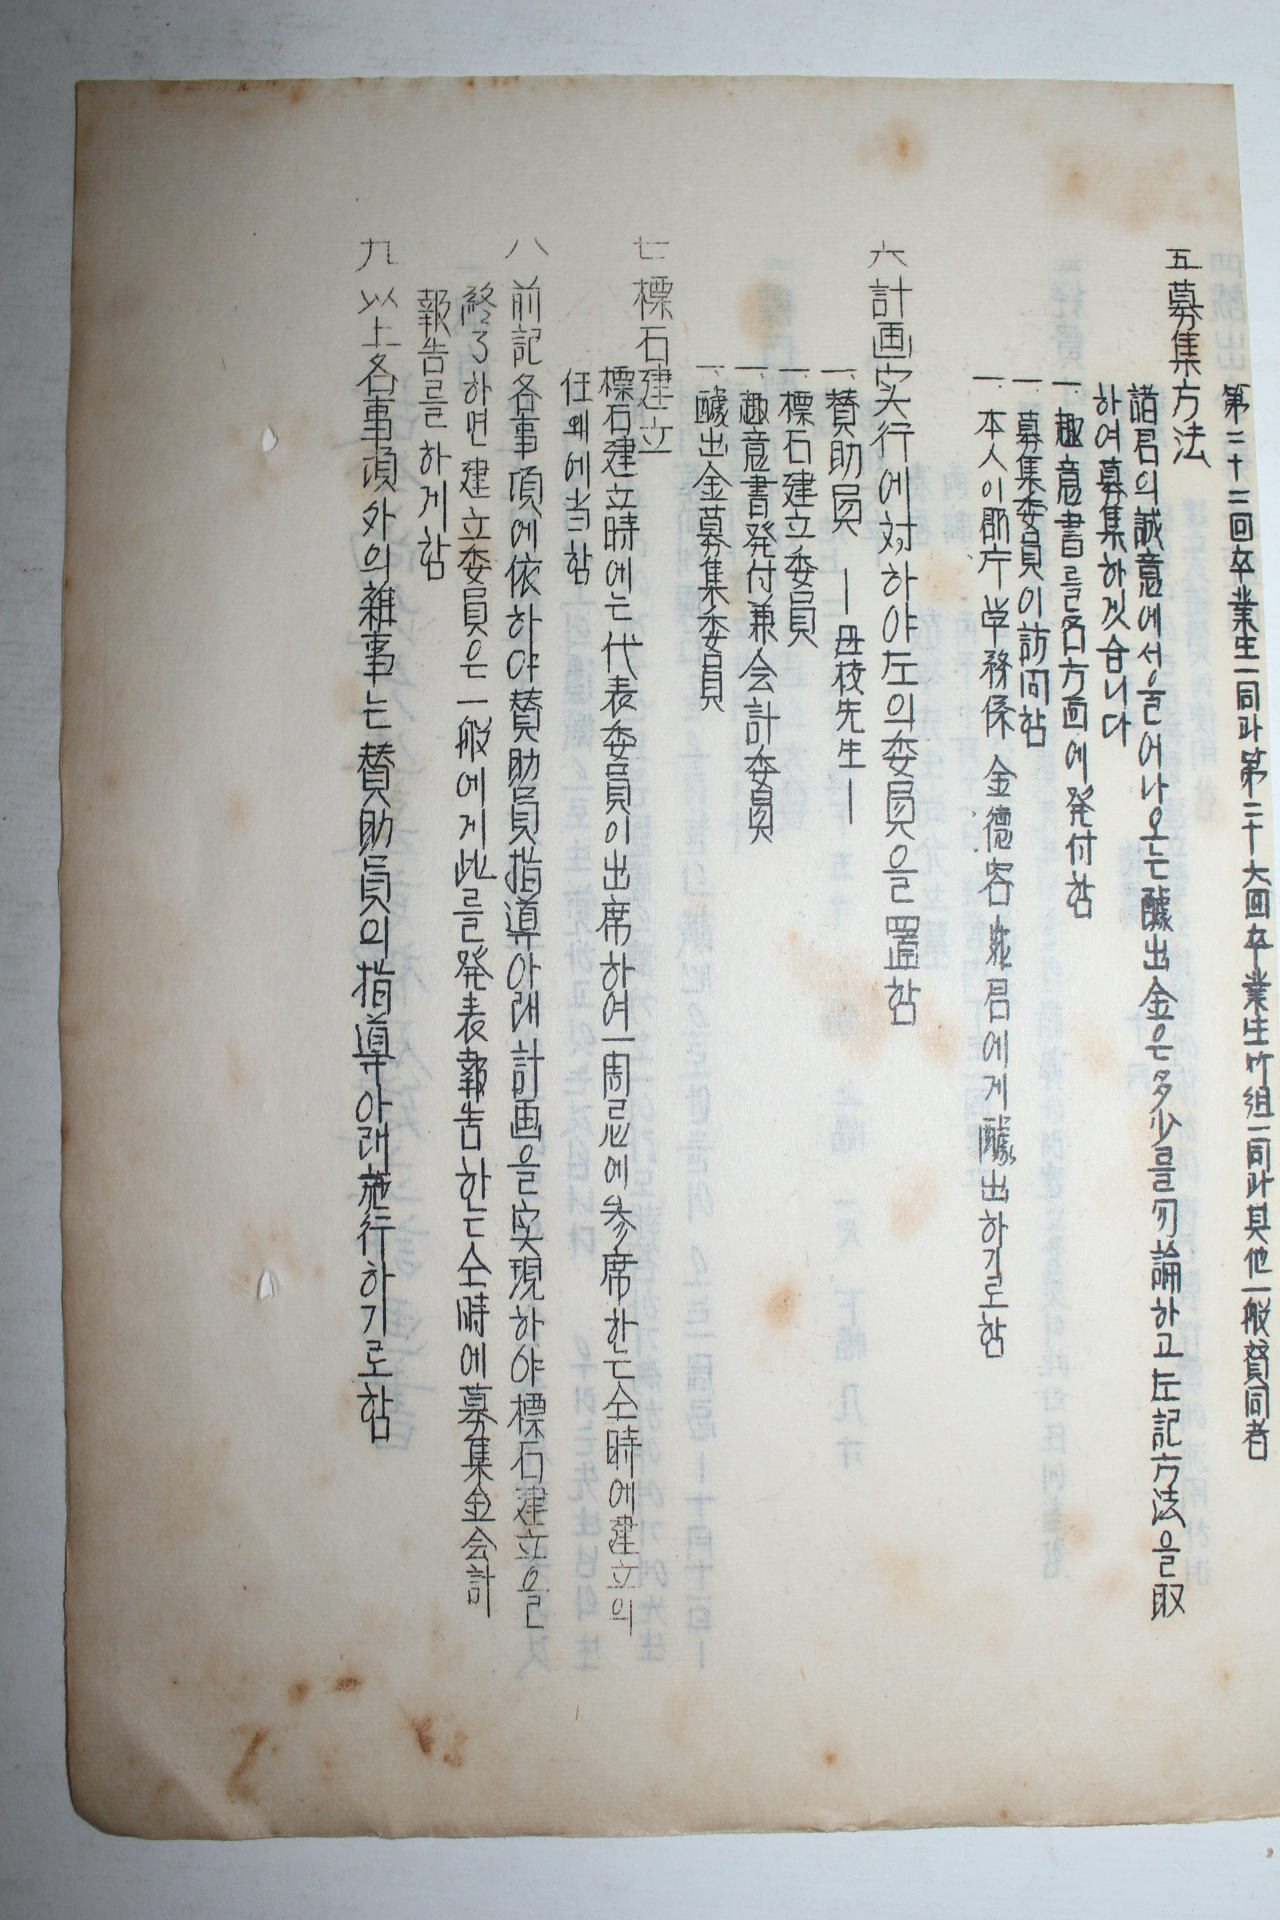 第二十三回卒業生一同과第二十六回卒業生竹組一同과其他一般賛同者
五 募集方法
諸君의誠意에서울어나오는醵出金은多少를勿論하고左記方法을取
하여募集하겠습니다
一、趣意書를各方面에発付함
一、募集委員이訪問함
一、本人이郡庁学務係 金德容 君에게醵出하기로함
六 計画実行에対하야左의委員을置함
一、賛助員 ー丹枝先生ー
一、標石建立委員
一、趣意書発付兼会計委員
一、醵出金募集委員
七 標石建立
標石建立時에는代表委員이出席하여一周忌에参席하는仝時에建立의
任에当함
八 前記各事項에依하야賛助員指導아래計画을実現하야標石建立을
終了하면建立委員은一般에게此를発表報告하는仝時에募集金会計
報告를하게함
九 以上各事項外의雑事는賛助員의指導아래施行하기로함